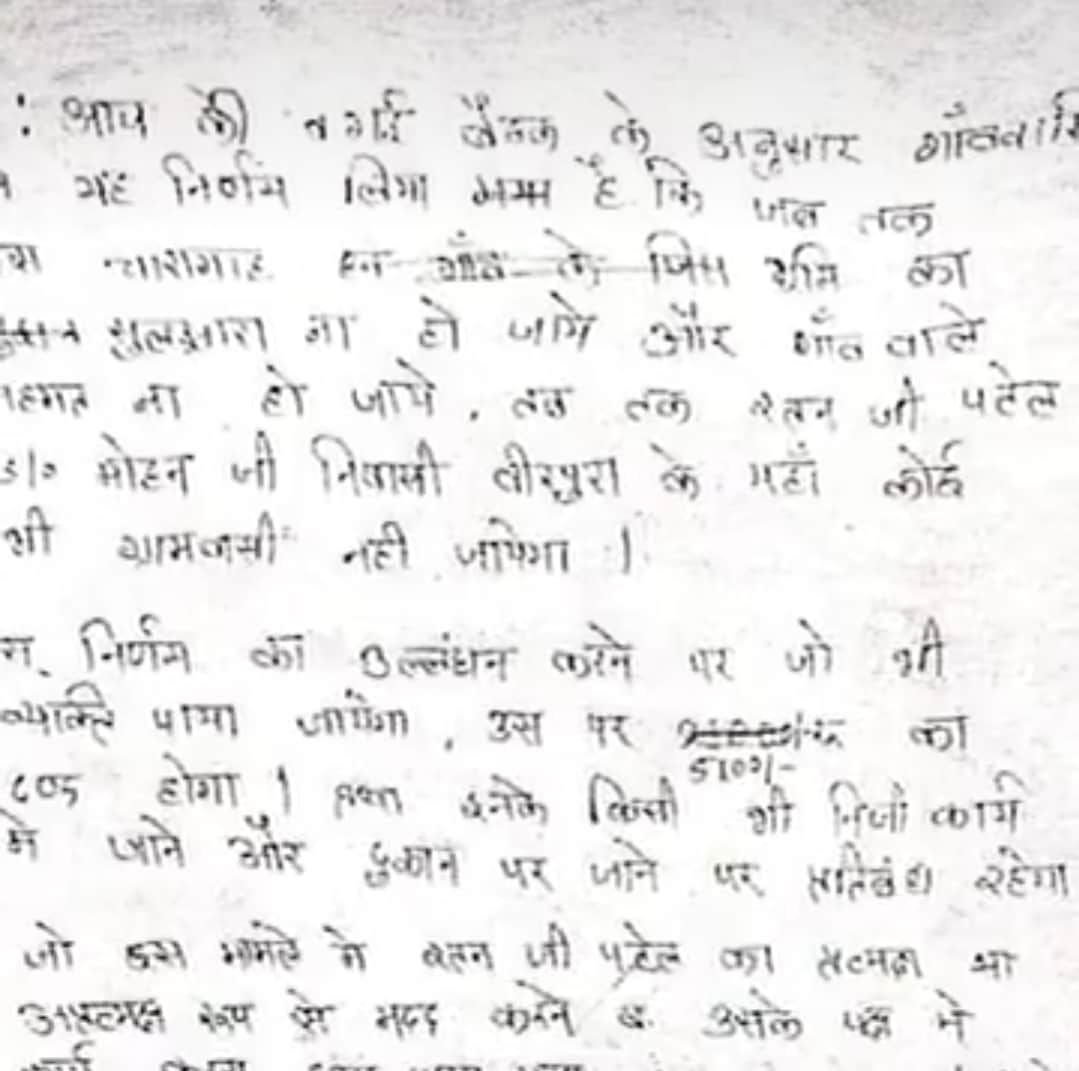 : आज की बैठक के अनुसार गाँववासि
यह निर्णय लिया गया है कि जब तक
चारागाह गाँव के जिस भूमि का
ना हो जाये और गाँव वाले
सहमत ना हो जाये, तब तक रतन जी पटेल
S/o मोहन जी निवासी वीरपुरा के यहाँ कोई
भी ग्रामवासी नही जायेगा ।
निर्णय का उल्लंघन करने पर जो भी
व्यक्ति पाया जायेगा, उस पर का
5100/-
दण्ड होगा । तथा इनके किसी भी निजी कार्य
मे जाने और दुकान पर जाने पर प्रतिबंध रहेगा
जो इस मामले मे रतन जी पटेल का प्रत्यक्ष या
अप्रत्यक्ष रूप से मदद करने व उसके पक्ष मे